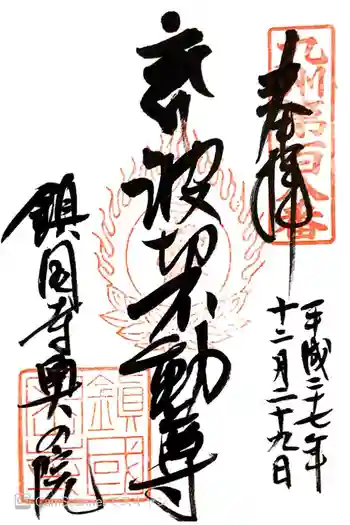 九州第百八番
奉拝
平成二十七年
十二月二十九日
波切不動尊
鎮国寺奥の院
鎮國